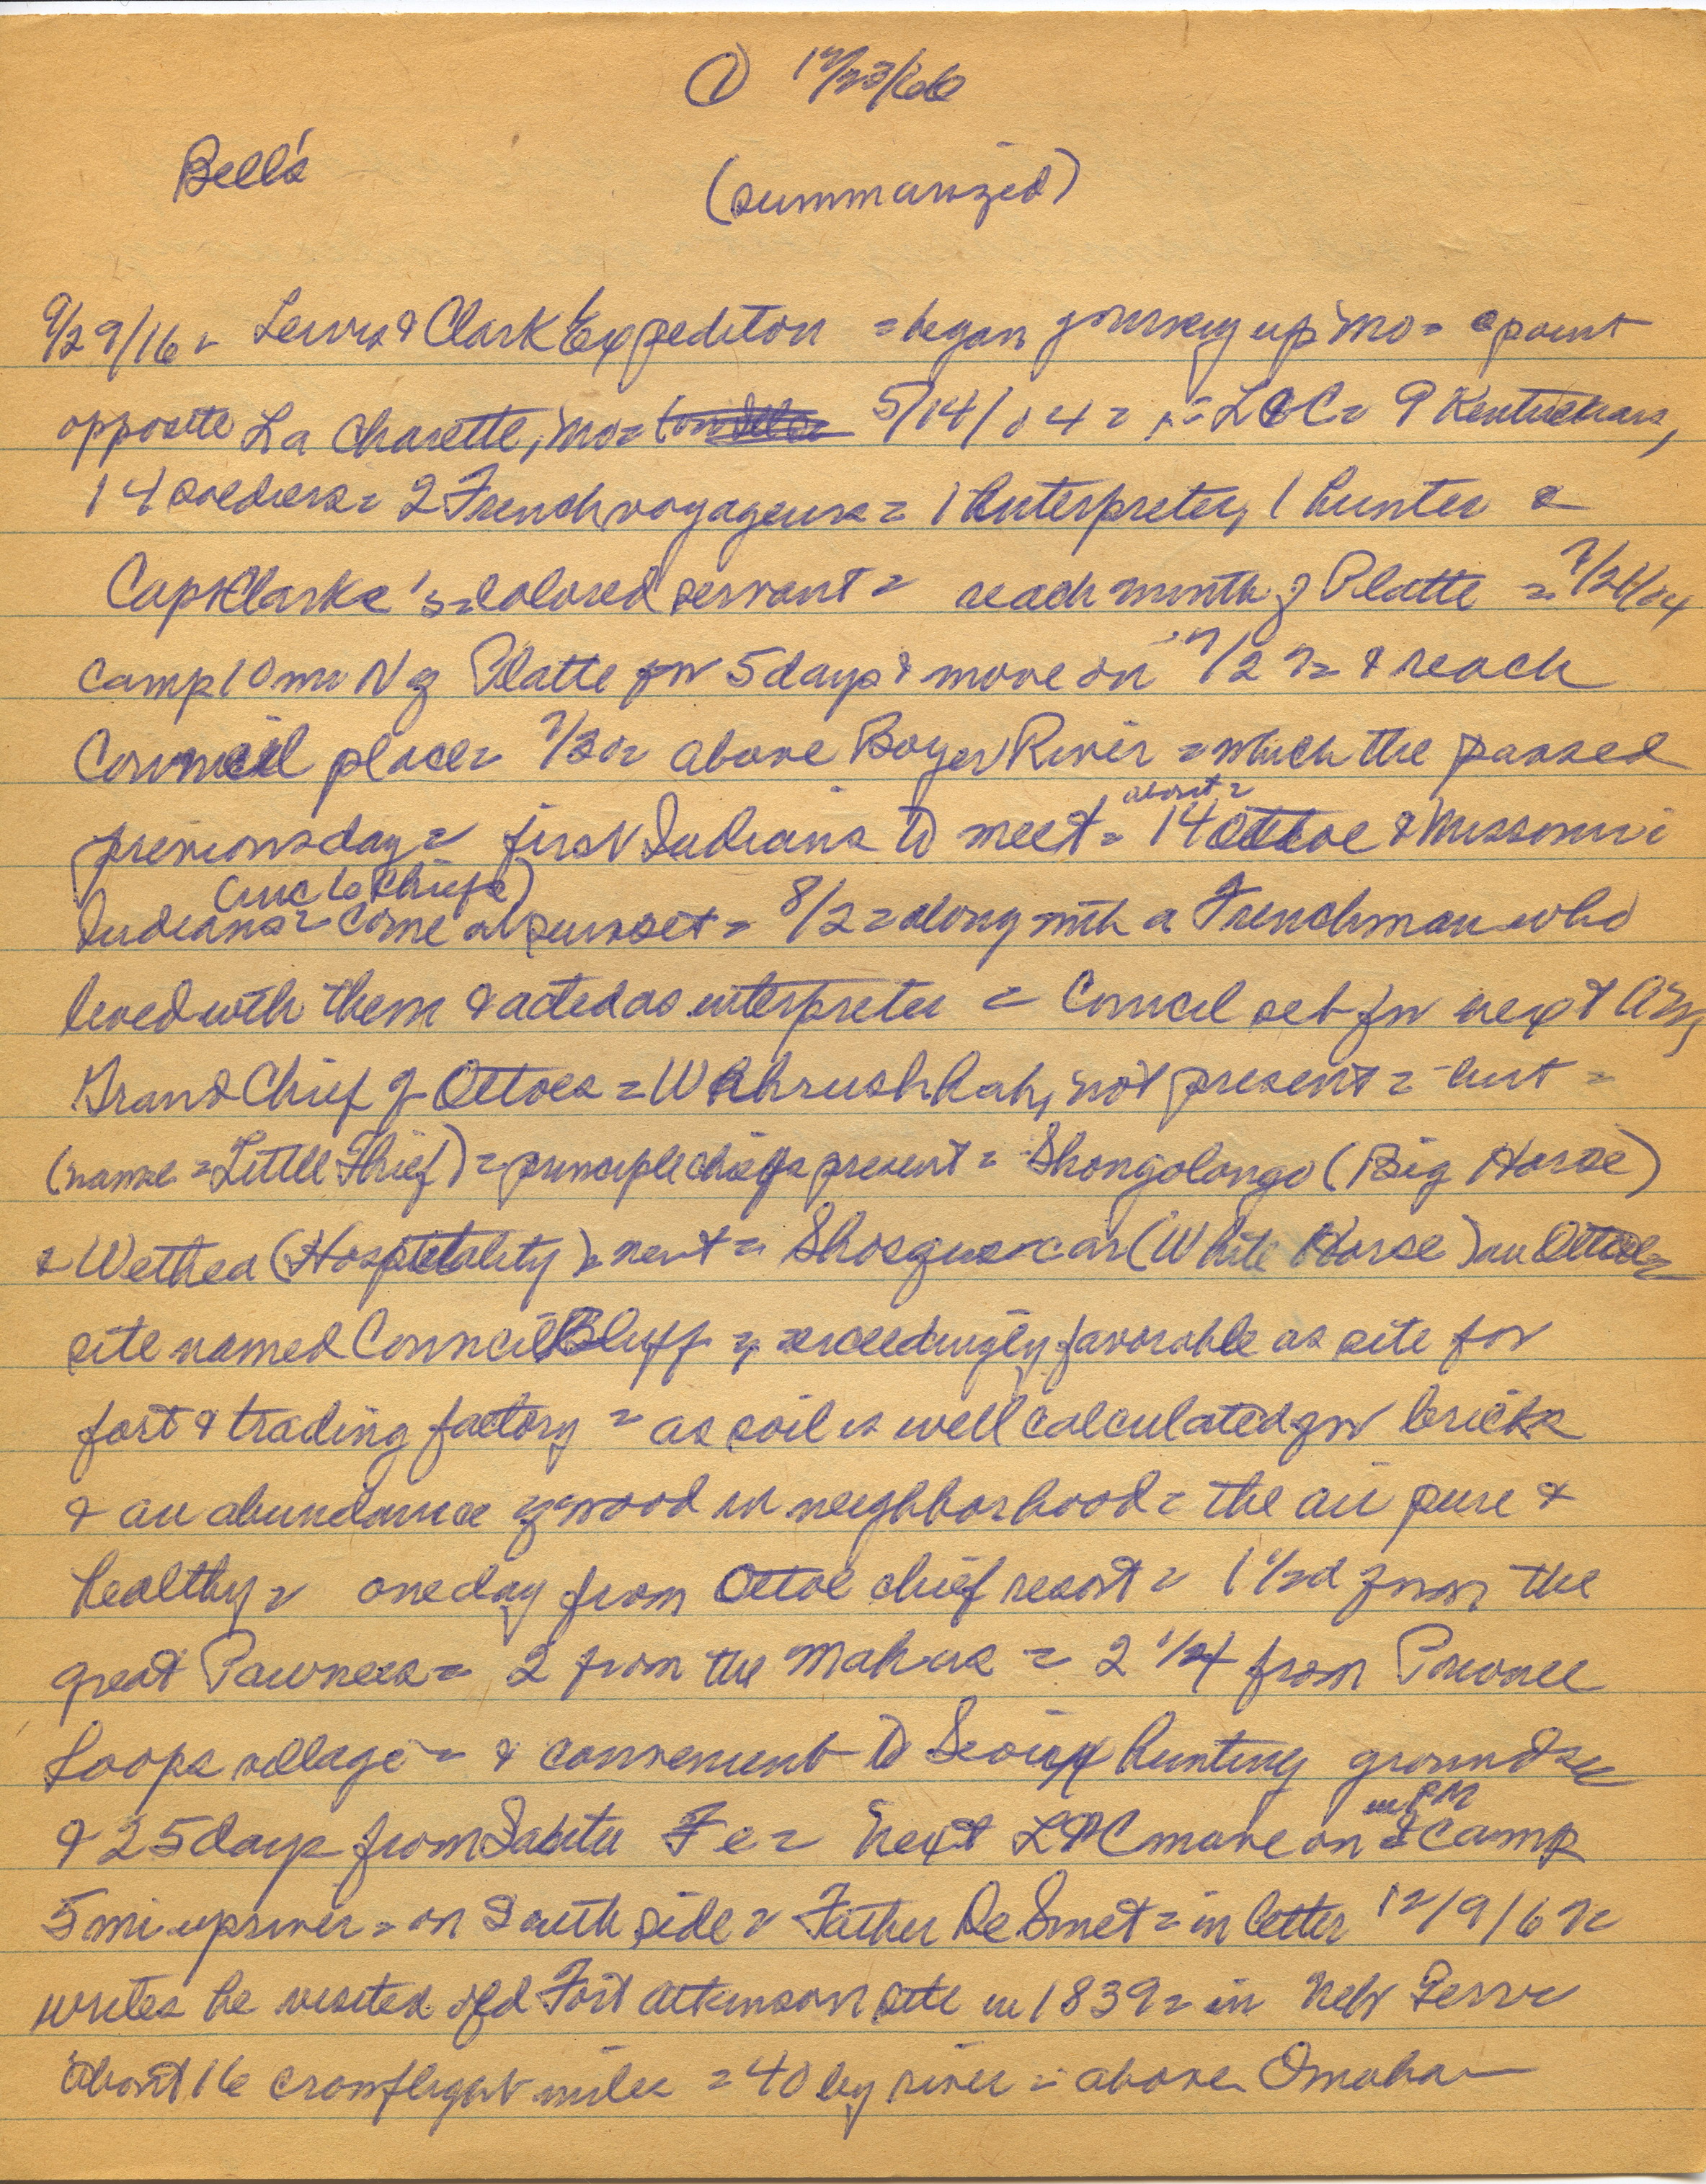 ① 12/23/66
Bell's (summarized)
9/29/16 = Lewis & Clark Expediton = began journey up Mo = @ point
opposite La Charette, Mo = 5/14/04 = L&C = 9 Kentuckians,
14 soldiers = 2 French voyageurs = 1 interpreter, 1 hunter &
Capt Clarke's = colored servant = reach mouth of Platte = 7/21/04
camp 10 mi N of Platte for 5 days & move on 7/27 = & reach
Council place = 7/30 = above Boyer River = which the passed
previous day = first Indians to meet = about = 14 Ottoe & Missouri
Indians = (inc 6 Chiefs) come at sunset = 8/2 = along with a Frenchman who
lived with them & acted as interpreter = Council set for next AM,
Grand Chief of Ottoes = Wahrushhah, not present = but =
(name = Little Thief) = principle chiefs present = Shongolongo (Big Horse)
& Wethea (Hospitality) & next = Shosguscan (White Horse) an Ottoe =
site named Council Bluff = exceedingly favorable as site for
fort & trading factory = as soil is well calculated for bricks
& an abundance of wood in neighborhood = the air pure &
healthy = one day from Ottoe chief resort = 1 1/2 d from the
great Pawnees = 2 from the Mahas = 2 1/4 from Pawnee
Loops village = & convenient to Sioux hunting grounds
& 25 days from Santa Fe = Next L&C move on in PM & camp
5 mi upriver = on South side = Father De Smet = in letter 12/9/67 =
writes he visited old Fort Atkinson site in 1839 = in Nebr Terr =
about 16 crowflight miles = 40 by river = above Omaha